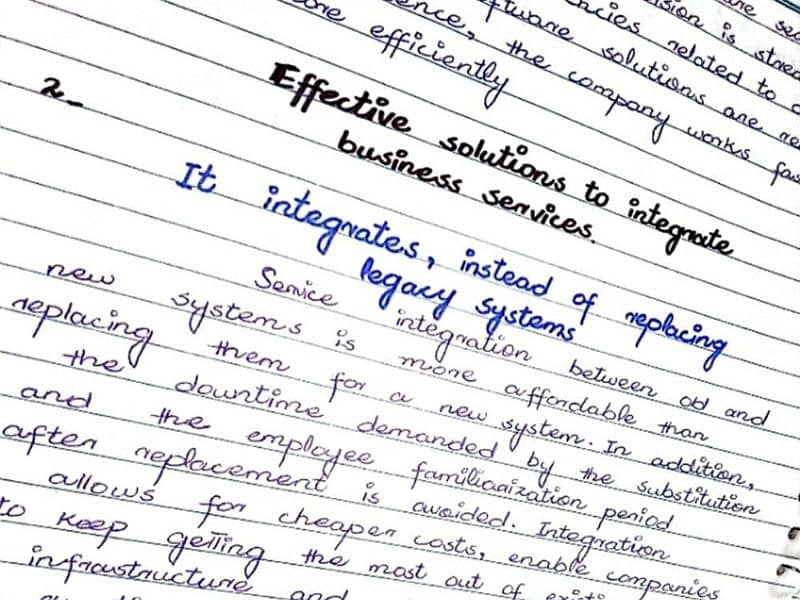 are sec
ncies vision is stored
ence, software related to a
more the solutions are re
efficiently company works fas
2- Effective solutions to integrate
business services.
It integrates, instead of replacing
legacy systems
Service integration between old and
new systems is more affordable than
replacing them for a new system. In addition,
the downtime demanded by the substitution
and the employee familiarization period
after replacement is avoided. Integration
allows for cheaper costs, enable companies
to keep getting the most out of existi
infraustructure and